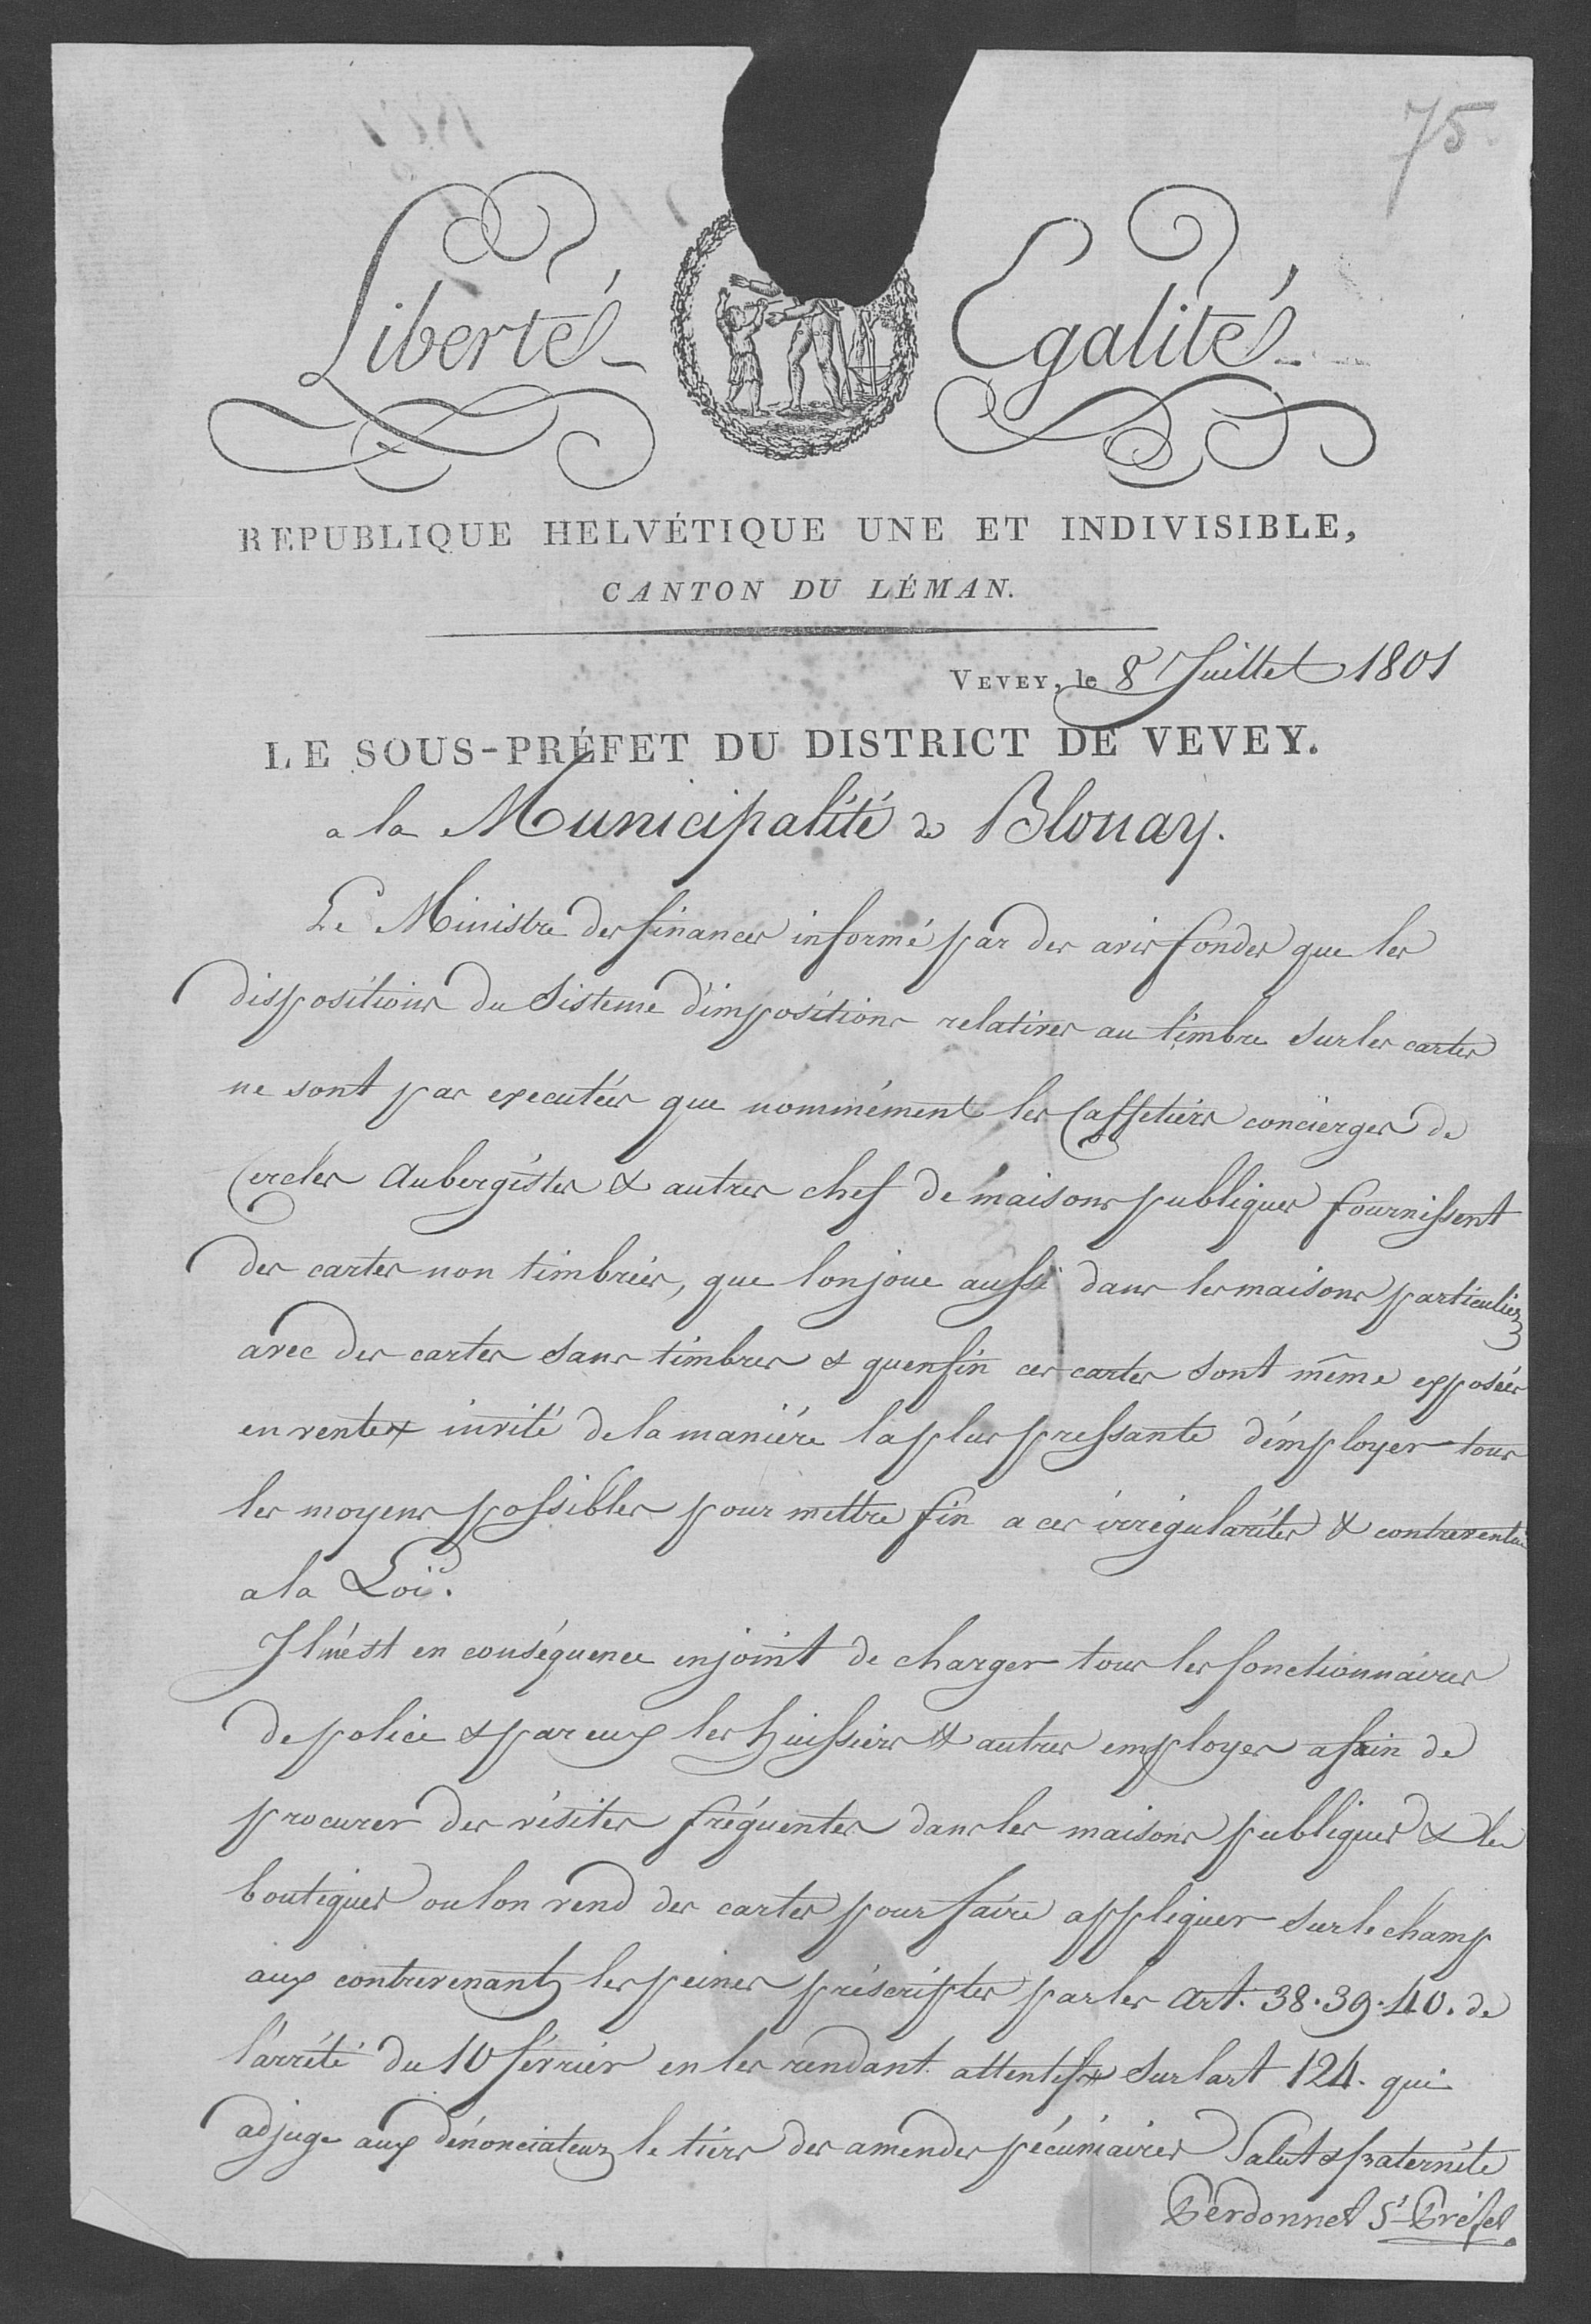 75.
Liberté Egalité
REPUBLIQUE HELVÉTIQUE UNE ET INDIVISIBLE,
CANTON DU LÉMAN.
VEVEY, le 8 Juillet 1801
LE SOUS-PRÉFET DU DISTRICT DE VEVEY.
a la Municipalité de Blonay.
Le Ministre des finances informé par des avis fondés que les
dispositions du Sisteme d'impositions relatives au timbre sur les cartes
ne sont pas executées que nominément les Caffetiers concierges de
Cercles Aubergistes & autres chef de maisons publiques fournissent
des cartes non timbrées, que lon joue aussi dans les maisons particuliers
avec des cartes sans timbres & quenfin ces cartes sont même exposées
en vente invité de la maniére la plus pressante démployer tous
les moyens possibles pour mettre fin a ces irrégularités &
a la Loi.
Il m'est en conséquence enjoint de charger tous les fonctionnaires
de police & par eux les huissiers & autres employes afain de
procurer des visites fréquentes dans les maisons publiques & les
boutiques ou lon vend des cartes pour faire appliquer sur le champ
aux contrevenants les peines préscriptes par les art. 38. 39. 40. de
l'arrété du 10 février en les rendant attentifs sur lart 124. qui
adjuge aux dénonciateurs le tiers des amendes pécuniaires Salut & fraternité
Perdonnet S' Préfet.